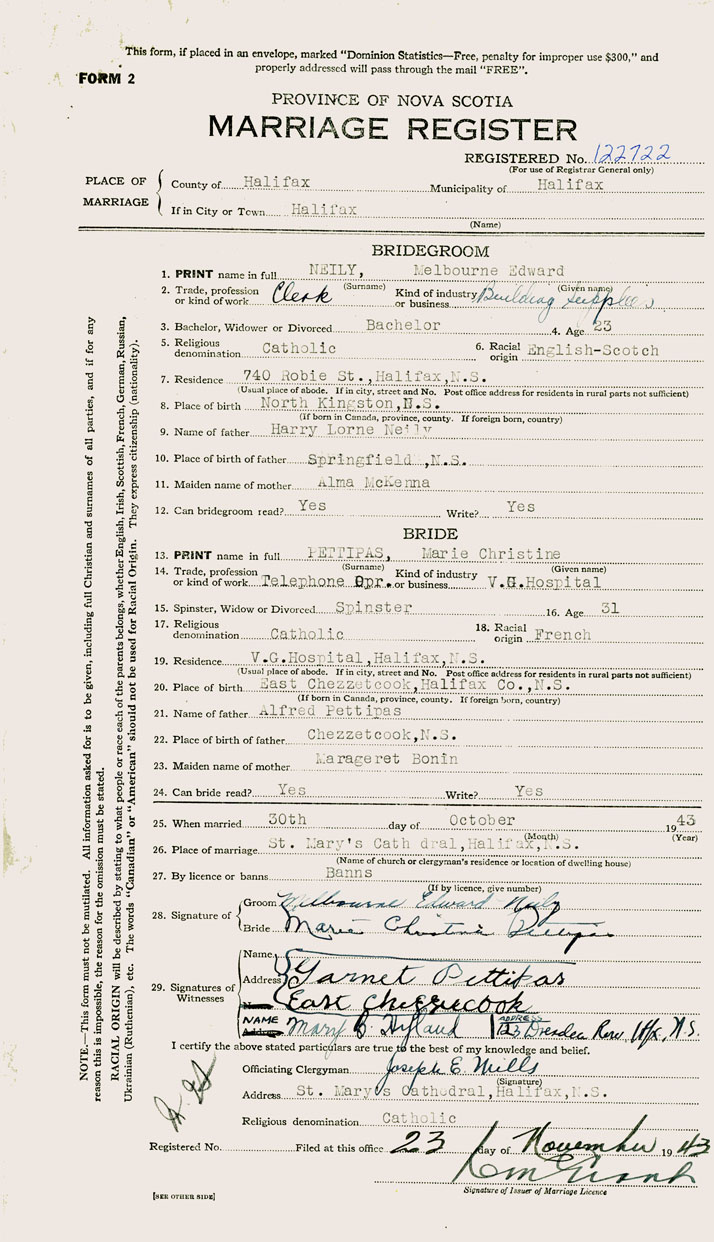 This form, if placed in an envelope, marked "Dominion Statistics—Free, penalty for improper use $300," and
properly addressed will pass through the mail "FREE".
FORM 2
PROVINCE OF NOVA SCOTIA
MARRIAGE REGISTER
REGISTERED No. 122722
(For use of Registrar General only)
PLACE OF MARRIAGE
County of Halifax Municipality of Halifax
If in City or Town Halifax
(Name)
BRIDEGROOM
1. PRINT name in full NEILY, Melbourne Edward
(Surname) (Given name)
2. Trade, profession or kind of work Clerk Kind of industry or business Building Supplies
3. Bachelor, Widower or Divorced Bachelor 4. Age 23
5. Religious denomination Catholic 6. Racial origin English-Scotch
7. Residence 740 Robie St., Halifax, N.S.
(Usual place of abode. If in city, street and No. Post office address for residents in rural parts not sufficient)
8. Place of birth North Kingston, N.S.
(If born in Canada, province, county. If foreign born, country)
9. Name of father Harry Lorne Neily
10. Place of birth of father Springfield, N.S.
11. Maiden name of mother Alma McKenna
12. Can bridegroom read? Yes Write? Yes
BRIDE
13. PRINT name in full PETTIPAS, Marie Christine
(Surname) (Given name)
14. Trade, profession or kind of work Telephone Opr. Kind of industry or business V.G.Hospital
15. Spinster, Widow or Divorced Spinster 16. Age 31
17. Religious denomination Catholic 18. Racial origin French
19. Residence V.G.Hospital, Halifax, N.S.
(Usual place of abode. If in city, street and No. Post office address for residents in rural parts not sufficient)
20. Place of birth East Chezzetcook, Halifax Co., N.S.
(If born in Canada, province, county. If foreign born, country)
21. Name of father Alfred Pettipas
22. Place of birth of father Chezzetcook, N.S.
23. Maiden name of mother Marageret Bonin
24. Can bride read? Yes Write? Yes
25. When married 30th day of October 1943
(Month) (Year)
26. Place of marriage St. Mary's Cath dral, Halifax, N.S.
(Name of church or clergyman's residence or location of dwelling house)
27. By licence or banns Banns
(If by licence, give number)
28. Signature of Groom Melbourne Edward Neily
Bride Marie Christine Pettipas
29. Signatures of Witnesses
Name Garnet Pettipas
Address East Chezzetcook
NAME Mary B. Hyland ADDRESS Dresden Row, Hfx, N.S.
I certify the above stated particulars are true to the best of my knowledge and belief.
Officiating Clergyman Joseph E. Mills
(Signature)
Address St. Mary's Cathedral, Halifax, N.S.
Religious denomination Catholic
Registered No. Filed at this office 23 day of November 1943
Signature of Issuer of Marriage Licence
[SEE OTHER SIDE]
NOTE.—This form must not be mutilated. All information asked for is to be given, including full Christian and surnames of all parties, and if for any
reason this is impossible, the reason for the omission must be stated.
RACIAL ORIGIN will be described by stating to what people or race each of the parents belongs, whether English, Irish, Scottish, French, German, Russian,
Ukrainian (Ruthenian), etc. The words "Canadian" or "American" should not be used for Racial Origin. They express citizenship (nationality).